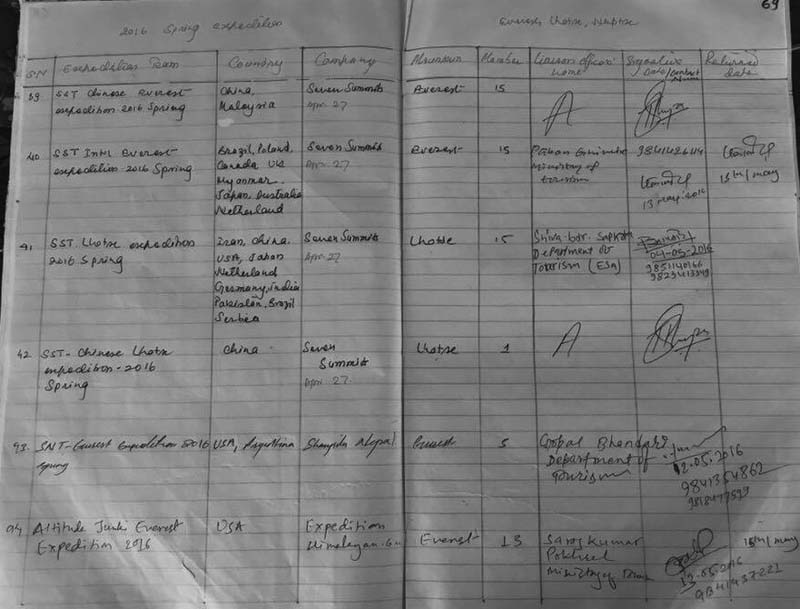 2016 Spring expedition
Everest, Lhotse, Nuptse
69
S.N Expedition Team Country Company Mountain Member Liaison officers name Signature Date/contact Returned date
39 SST Chinese Everest expedition 2016 Spring
China, Malaysia
Seven Summits
Apr. 27
Everest
15
A
40 SST Intl Everest expedition-2016 Spring
Brazil, Poland,
Canada, UK
Myanmar,
Japan, Australia
Netherland
Seven Summits
Apr. 27
Everest
15
Ministry of
tourism
13 may. 2016
15th/may
41 SST. Lhotse expedition
2016 Spring
Iran, China,
USA, Japan
Netherland
Germany, india
Pakistan, Brazil
Serbia
Seven Summits
Apr. 27
Lhotse
15
Department of
Tourism (ESA)
04-05-2016
9851140166
42 SST- Chinese Lhotse
expedition-2016
Spring
China
Seven
Summits
Apr. 27
Lhotse
1
A
93. SNT-Everest Expedition 2016
Spring
USA, Argenthina
Shangrila Nepal
Everest
5
Gopal Bhandari
Department of
Tourism
12.05.2016
9841354862
9818477599
94 Altitude Junki Everest
Expedition 2016
USA
Expedition
Himalayan.
Everest
13
Saroj Kumar
Pokhrel
Ministry of
15th/may
9841437221